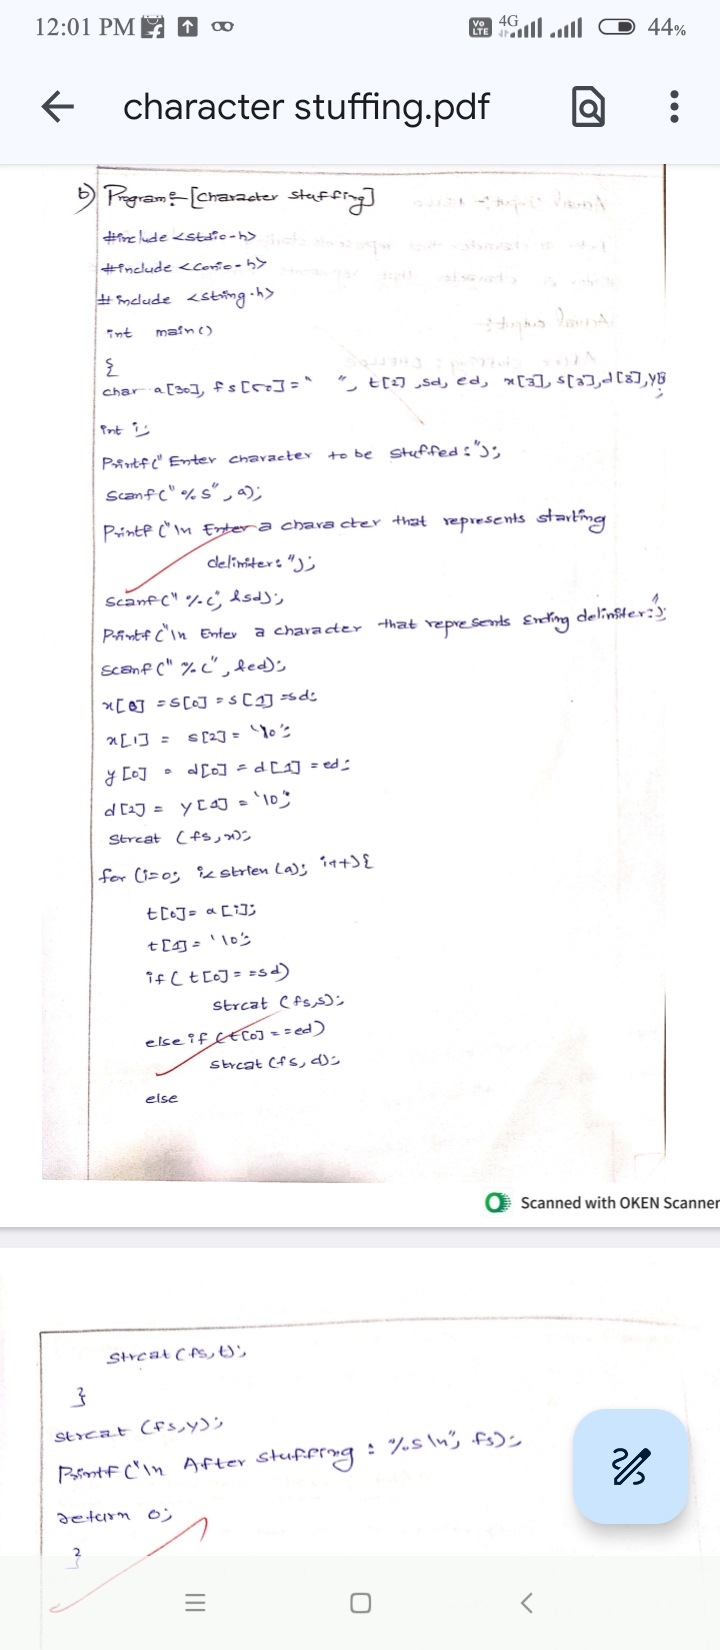 12:01 PM
VO LTE 4G 44%
character stuffing.pdf
b) Program:- [Character stuffing]
#include <stdio-h>
#include <conio-h>
#include <string.h>
int main()
{
char a[30], fs[50]=" ", t[2], sd, ed, x[3], s[3], d[3], y[3];
int i;
Printf(" Enter character to be stuffed:");
Scanf("%s", a);
Printf("\n Enter a character that represents starting
delimiter:");
Scanf(" %c", &sd);
Printf("\n Enter a character that represents Ending delimiter:");
Scanf(" %c", &ed);
x[0] = s[0] = s[1] = sd;
x[1] = s[2] = '\0';
y[0] = d[0] = d[1] = ed;
d[2] = y[1] = '\0';
Strcat (fs,x);
for (i=0; i< strlen (a); i++){
t[0]= a[i];
t[1]= '\0';
if (t[0]==sd)
strcat (fs,s);
else if (t[0]==ed)
strcat (fs, d);
else
Scanned with OKEN Scanner
Strcat (fs,t);
}
strcat (fs,y);
Printf("\n After stuffing : %s\n", fs);
return 0;
}